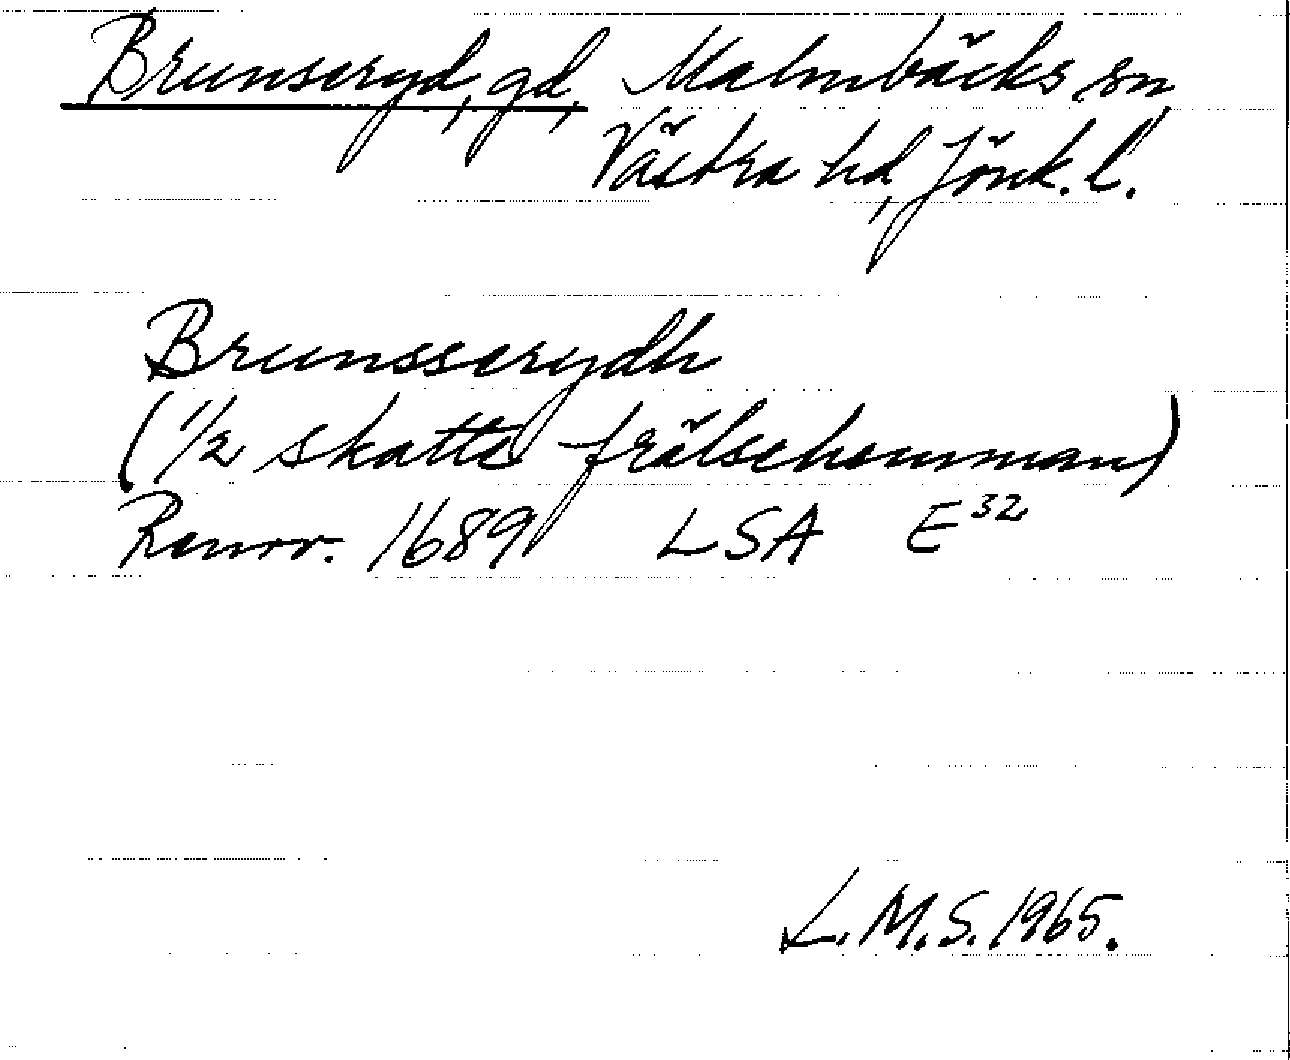 Brunseryd, gd, Malmbäcks sn
Västra hd, Jönk. l.
Brunsserydh
(1/2 skatte frälsehemman)
Ransr. 1689 LSA E32
L.M.S. 1965.